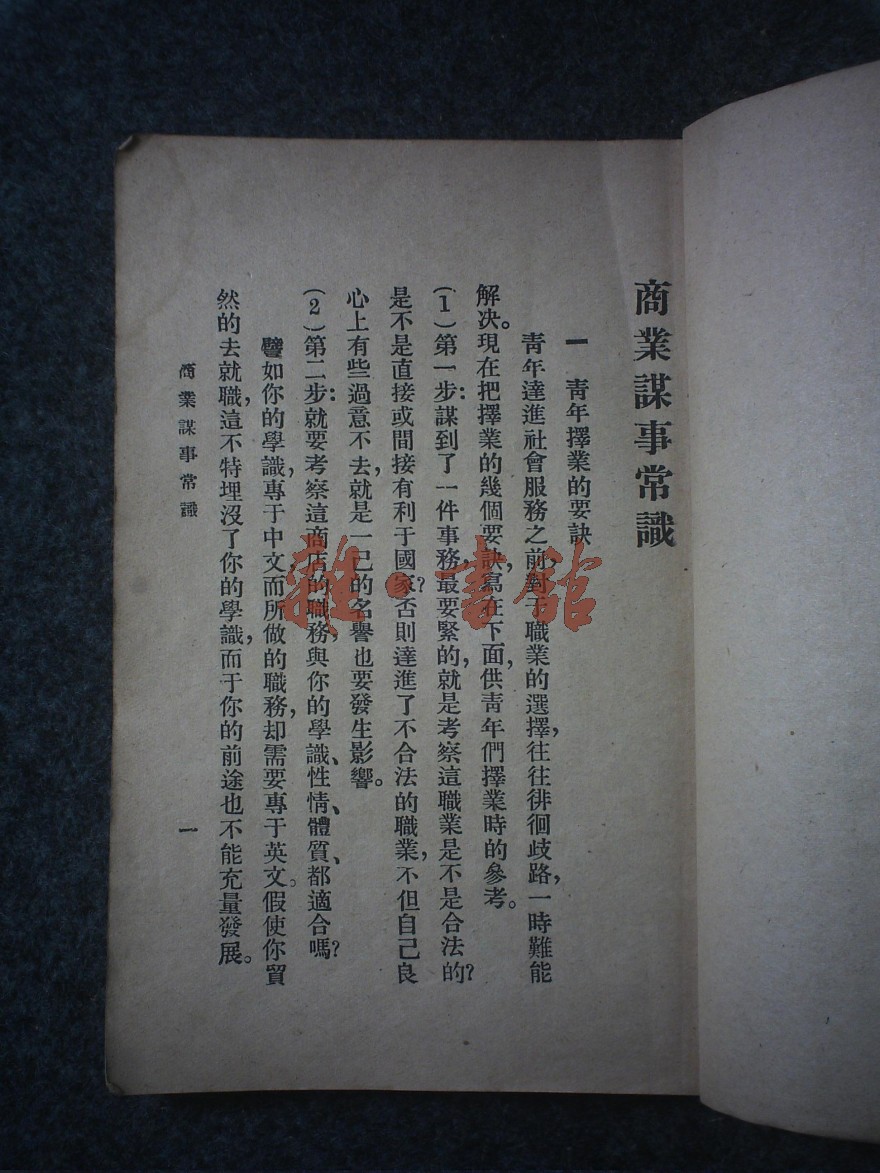 商業謀事常識
一 青年擇業的要訣
青年達進社會服務之前，對于職業的選擇，往往徘徊歧路，一時難能
解决。現在把擇業的幾個要訣，寫在下面，供青年們擇業時的參考。
(1)第一步：謀到了一件事務，最要緊的，就是考察這職業是不是合法的？
是不是直接或間接有利于國家？否則達進了不合法的職業，不但自己良
心上有些過意不去，就是一己的名譽也要發生影響。
(2)第二步：就要考察這商店的職務，與你的學識、性情、體質、都適合嗎？
譬如你的學識，專于中文，而所做的職務，却需要專于英文。假使你貿
然的去就職，這不特埋沒了你的學識，而于你的前途也不能充量發展。
商業謀事常識
一
雜·書舘